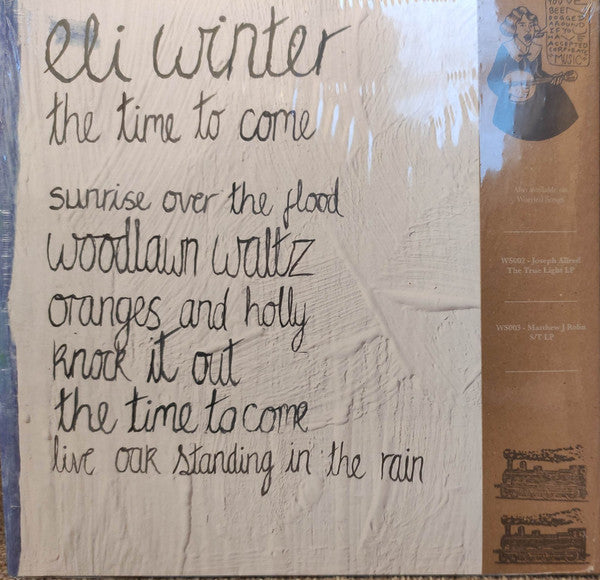 eli winter
the time to come
sunrise over the flood
woodlawn waltz
oranges and holly
knock it out
the time to come
live oak standing in the rain
YOU'VE
BEEN
DOGGED
AROUND
IF YOU
HAVE
ACCEPTED
CORPORATE
MUSIC
Also available on
Worried Songs
WS002 - Joseph Allred
The True Light LP
WS003 - Matthew J Rolin
S/T LP